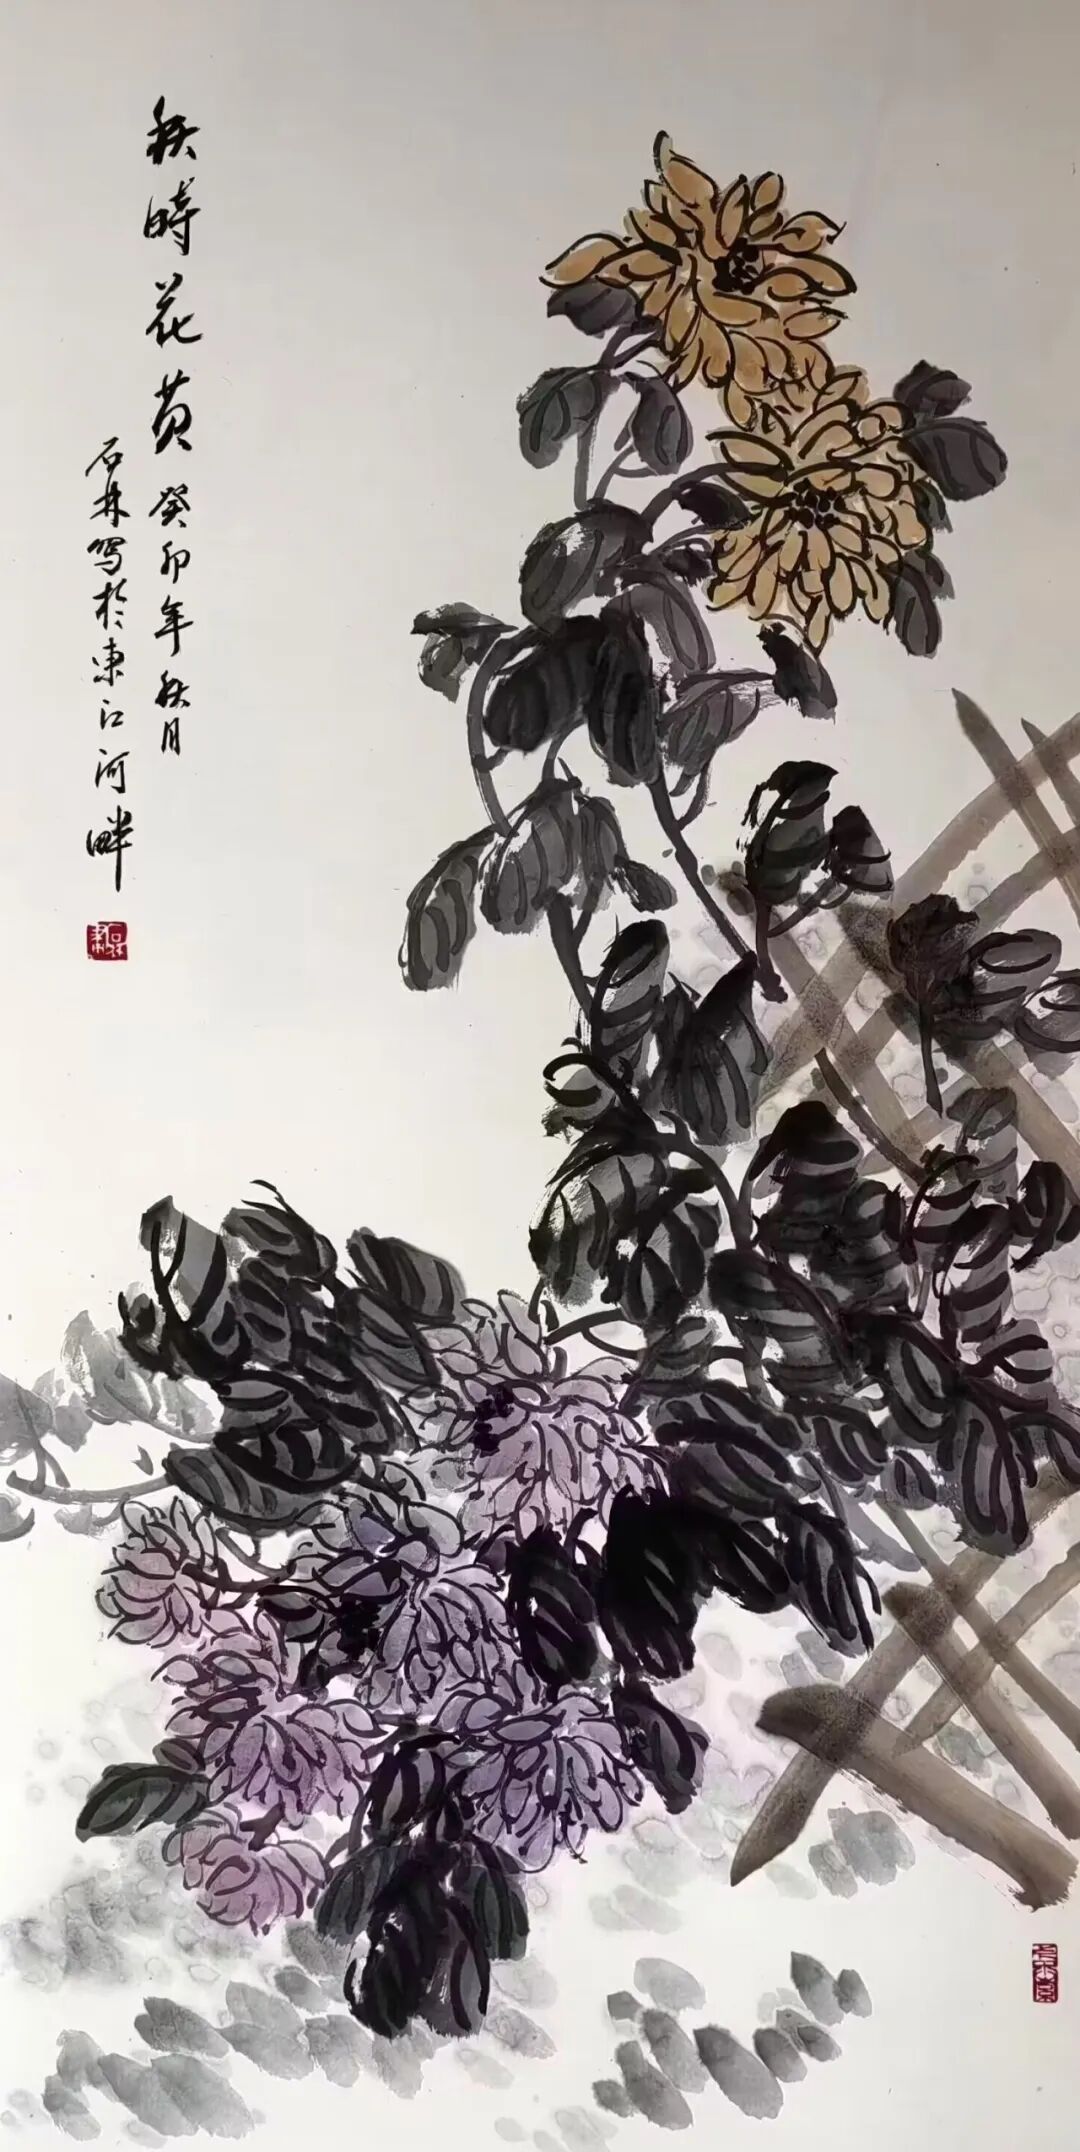 秋時花黄
癸卯年秋月
石林写於東江河畔